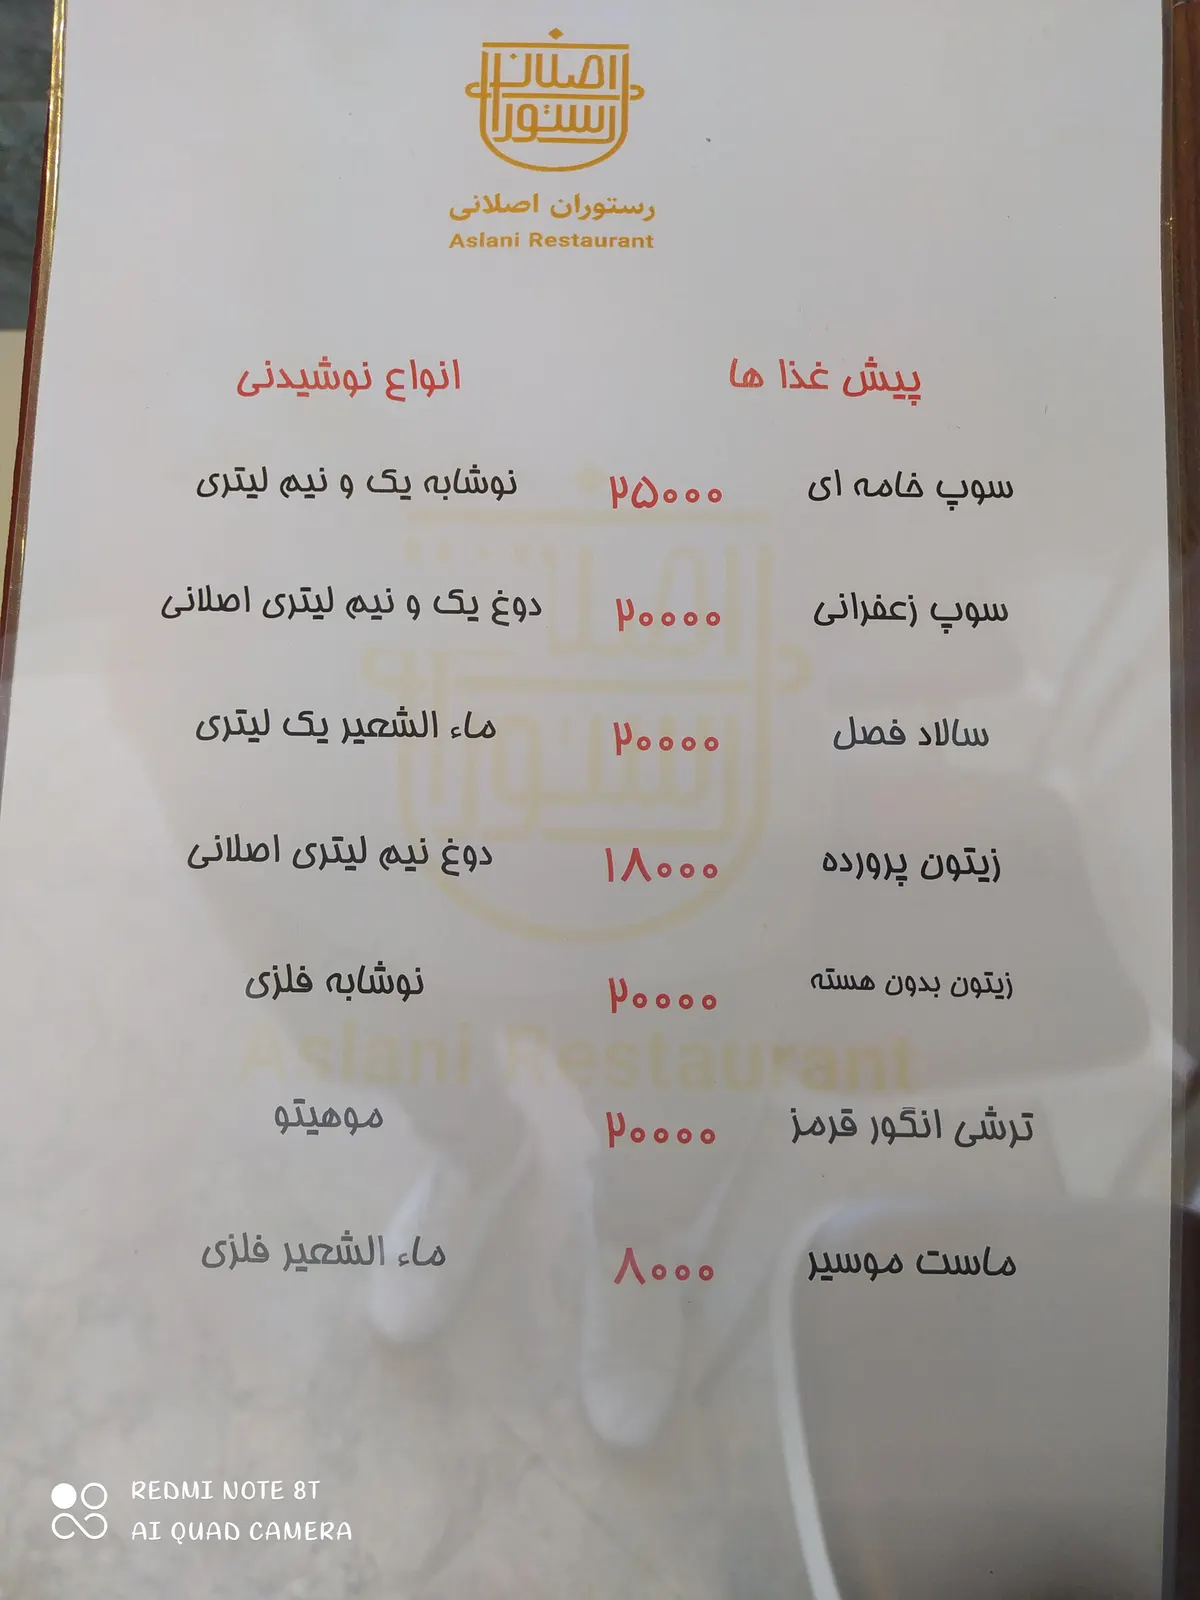 اصلانی
رستوران
رستوران اصلانی
Aslani Restaurant
پیش غذا ها
سوپ خامه ای ۲۵۰۰۰
سوپ زعفرانی ۲۰۰۰۰
سالاد فصل ۲۰۰۰۰
زیتون پرورده ۱۸۰۰۰
زیتون بدون هسته ۲۰۰۰۰
ترشی انگور قرمز ۲۰۰۰۰
ماست موسیر ۸۰۰۰
انواع نوشیدنی
نوشابه یک و نیم لیتری
دوغ یک و نیم لیتری اصلانی
ماء الشعیر یک لیتری
دوغ نیم لیتری اصلانی
نوشابه فلزی
موهیتو
ماء الشعیر فلزی
اصلانی
رستوران
Aslani Restaurant
REDMI NOTE 8T
AI QUAD CAMERA